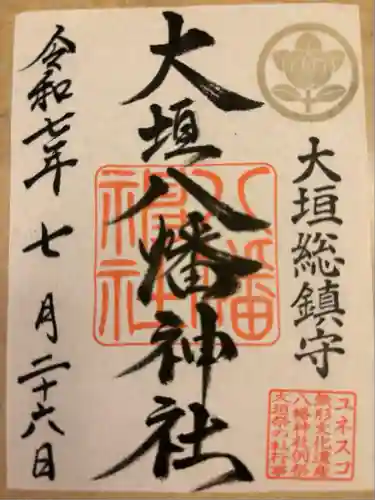 大垣総鎮守
ユネスコ
無形文化遺産
八幡神社例祭
大垣祭の軕行事
大垣八幡神社
八幡
神社
令和七年 七月二十六日